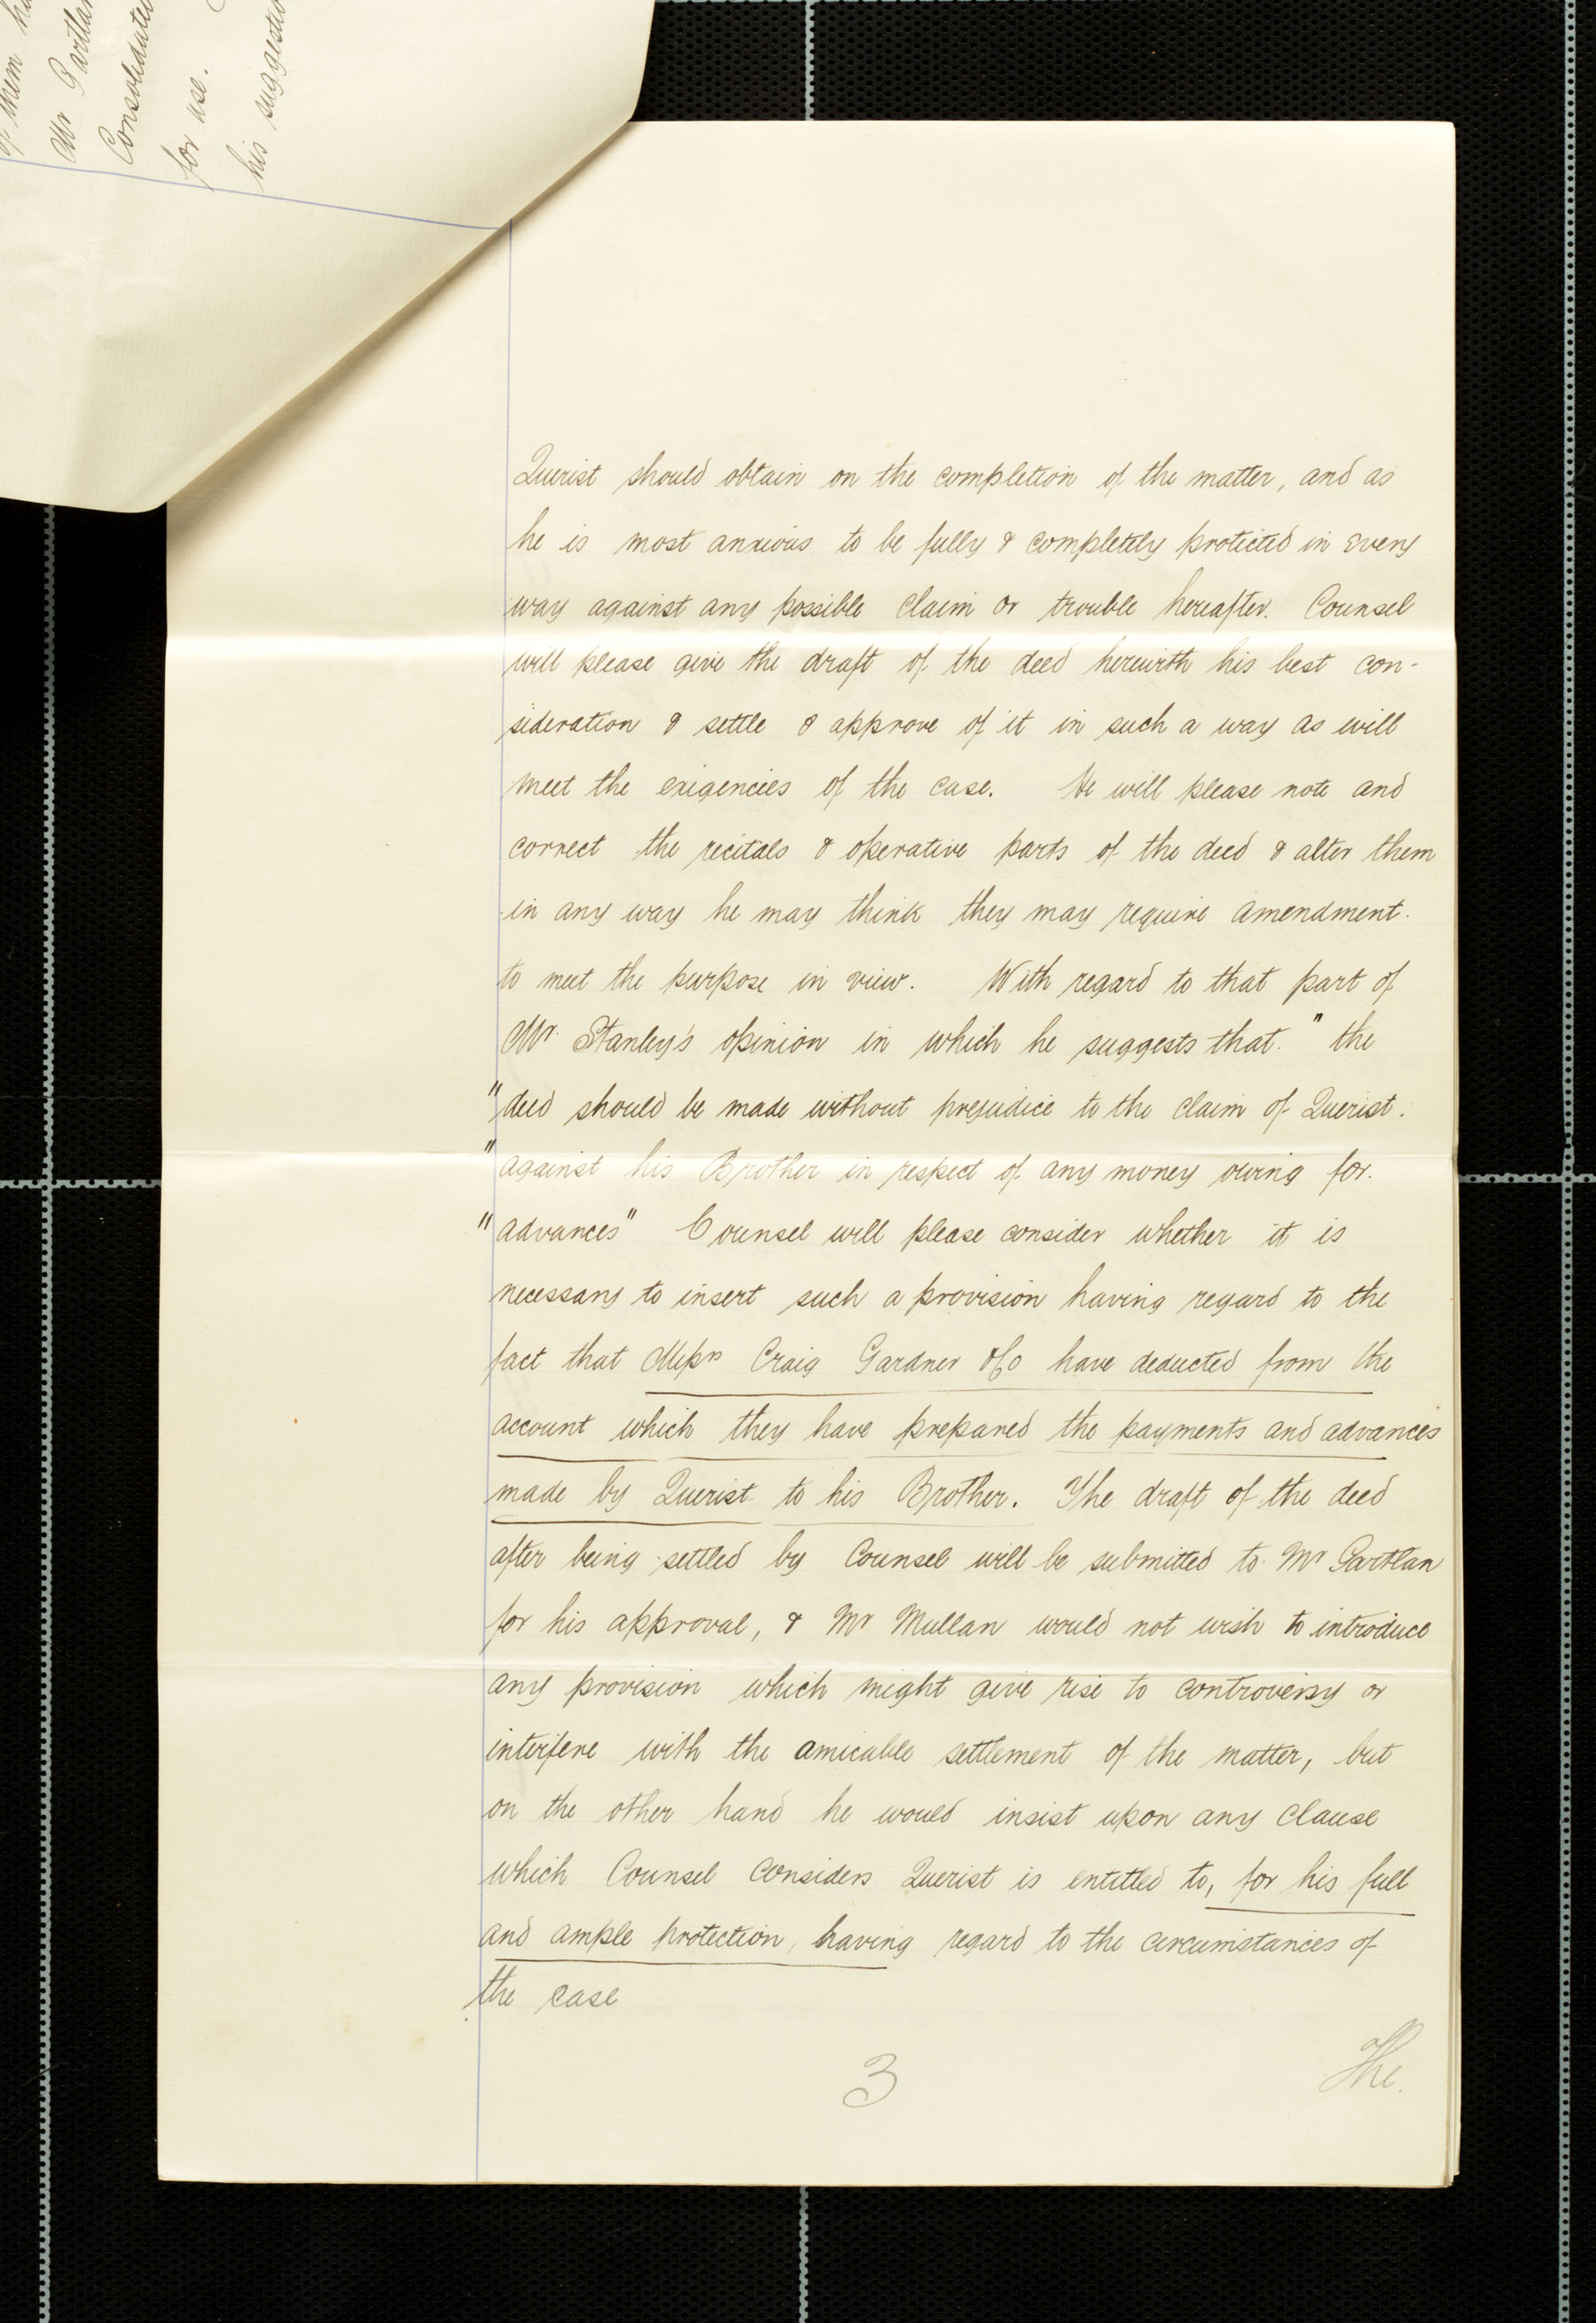 of them
Mr Gartlan
Consolidated
for use.
his suggestion
Querist should obtain on the completion of the matter, and as
he is most anxious to be fully & completely protected in every
way against any possible claim or trouble hereafter. Counsel
will please give the draft of the deed herewith his best con-
sideration & settle & approve of it in such a way as will
meet the exigencies of the case. He will please note and
correct the recitals & operative parts of the deed & alter them
in any way he may think they may require amendment.
to meet the purpose in view. With regard to that part of
Mr. Stanley's opinion in which he suggests that. " the
" deed should be made without prejudice to the claim of Querist.
" against his Brother in respect of any money owing for.
" advances" Counsel will please consider whether it is
necessary to insert such a provision having regard to the
fact that Messrs Craig Gardner & Co have deducted from the
account which they have prepared the payments and advances
made by Querist to his Brother. The draft of the deed
after being settled by Counsel will be submitted to Mr Gartlan
for his approval, & Mr Mullan would not wish to introduce
any provision which might give rise to controversy or
interfere with the amicable settlement of the matter, but
on the other hand he would insist upon any clause
which Counsel considers Querist is entitled to, for his full
and ample protection, having regard to the circumstances of
the case
The.
3